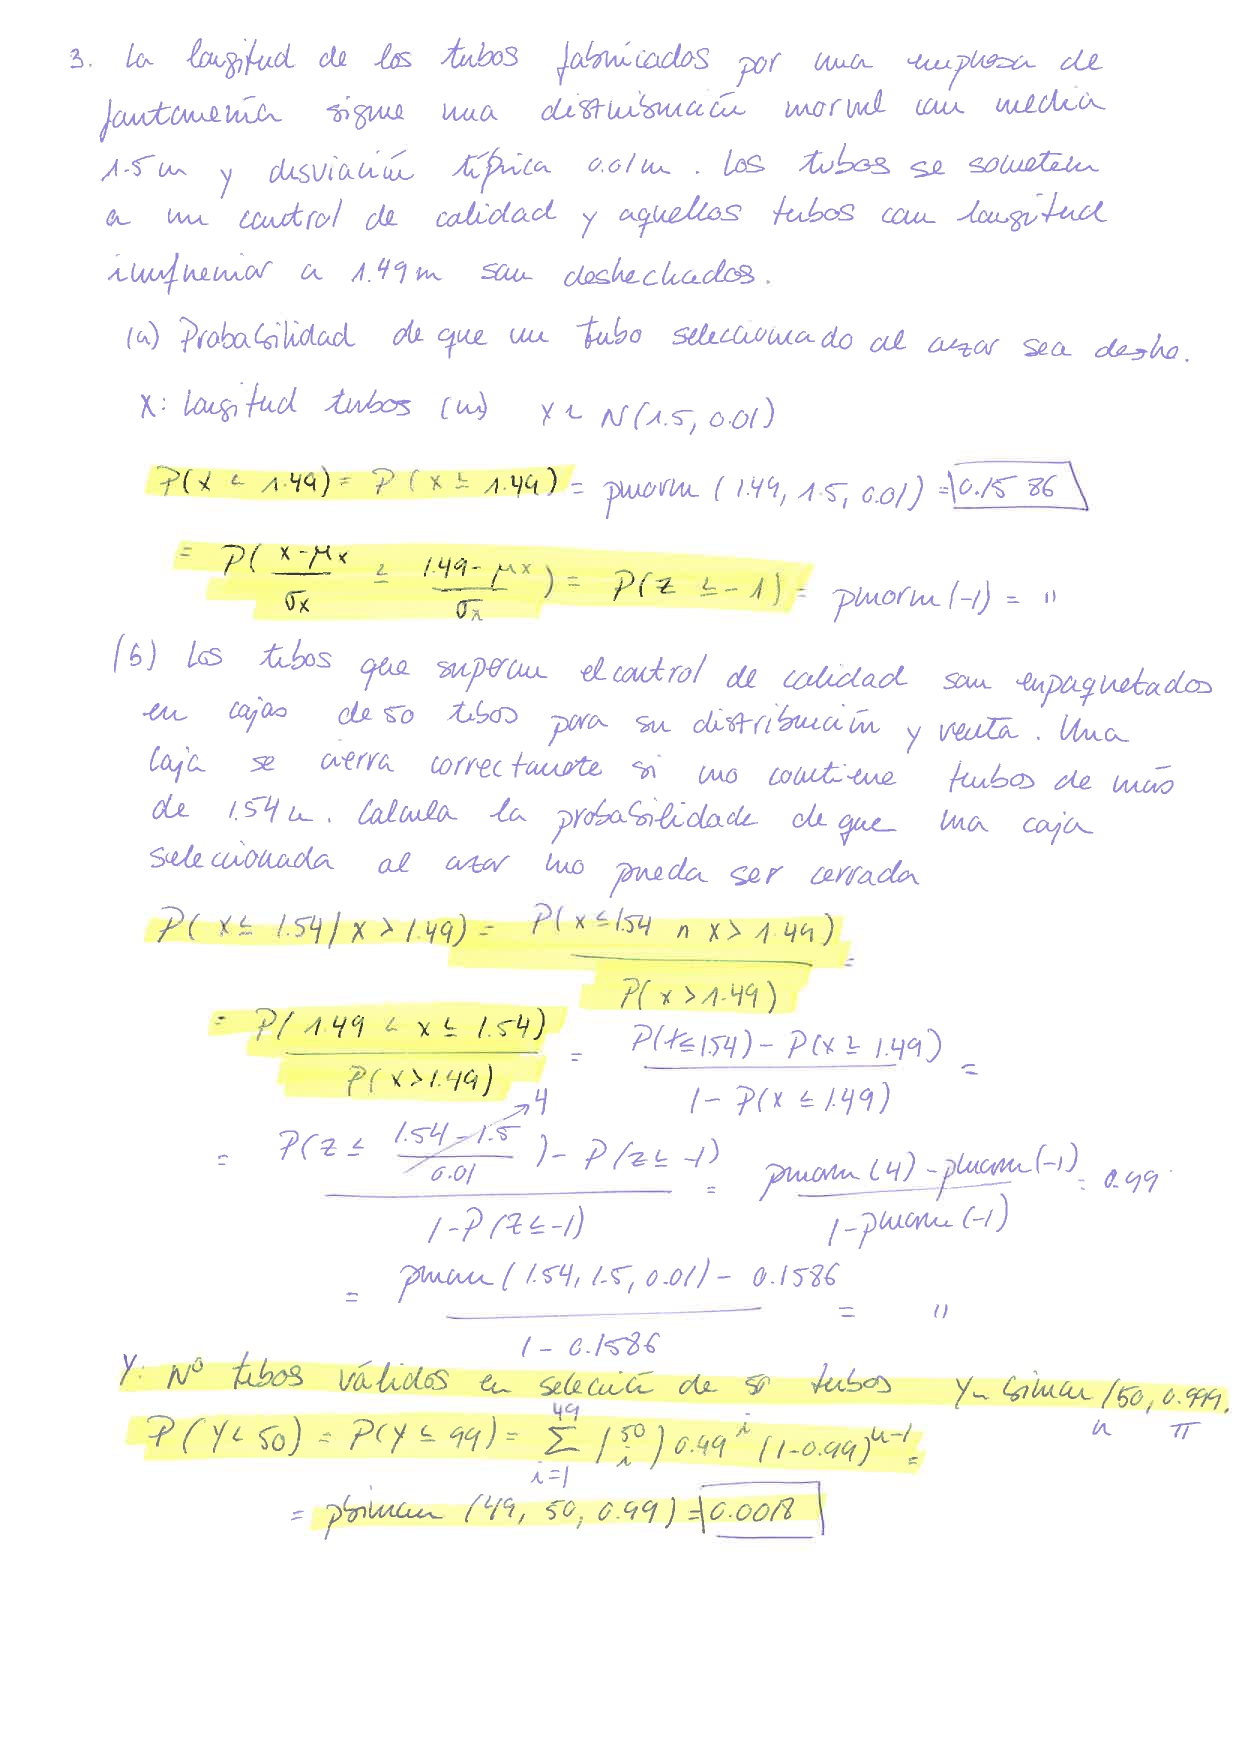 3. La longitud de los tubos fabricados por una empresa de
fontanería sigue una distribución normal con media
1.5 m y desviación típica 0.01 m. Los tubos se someten
a un control de calidad y aquellos tubos con longitud
inferior a 1.49 m son deshechados.
(a) Probabilidad de que un tubo seleccionado al azar sea deshe.
X: longitud tubos (m) X ~ N(1.5, 0.01)
P(X < 1.49) = P(X ≤ 1.49) = pnorm(1.49, 1.5, 0.01) = 0.1586
= P( (x-μx)/σx ≤ (1.49-μx)/σx ) = P(Z ≤ -1) = pnorm(-1) = "
(b) Los tubos que superan el control de calidad son enpaquetados
en cajas de 50 tubos para su distribución y venta. Una
caja se cierra correctamete si no contiene tubos de más
de 1.54 m. Calcula la probabilidade de que una caja
seleccionada al azar no pueda ser cerrada
P(X ≤ 1.54 / X > 1.49) = P(X ≤ 1.54 ∩ X > 1.49) / P(X > 1.49) =
= P(1.49 < X ≤ 1.54) / P(X > 1.49) = P(X ≤ 1.54) - P(X ≤ 1.49) / 1 - P(X ≤ 1.49) =
= P(Z ≤ (1.54 - 1.5)/0.01 → 4) - P(Z ≤ -1) / 1 - P(Z ≤ -1) = pnorm(4) - pnorm(-1) / 1 - pnorm(-1) = 0.99
= pnorm(1.54, 1.5, 0.01) - 0.1586 / 1 - 0.1586 = "
Y: Nº tubos válidos en selección de 50 tubos Y ~ binom(50, 0.999)
n π
P(Y < 50) = P(Y ≤ 99) = Σ i=1 49 (50 i) 0.99^i (1-0.99)^n-1 =
= pbinom(49, 50, 0.99) = 0.0018